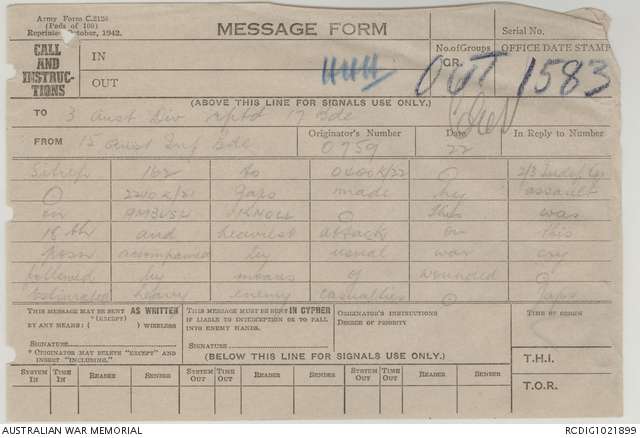 Army Form C.2128
(Pads of 100)
Reprinted October, 1942.
MESSAGE FORM
Serial No.
CALL AND INSTRUC-TIONS
IN
OUT
No. of Groups
GR.
OFFICE DATE STAMP
OUT 1583
(ABOVE THIS LINE FOR SIGNALS USE ONLY.)
TO 3 Aust Div rptd 17 Bde
FROM 15 Aust Inf Bde
Originator's Number
0759
Date
22
In Reply to Number
Sitrep 162 to 0600K/22 O 2/3 Indep Coy
O 2200K/21 Japs made by assault
on AMBUSH KNOLL O this was
16th and heaviest attack on this
posn accompanied by usual war cry
followed by moans of wounded O
Estimated heavy enemy casualties O Japs
THIS MESSAGE MAY BE SENT AS WRITTEN
*(EXCEPT)
BY ANY MEANS: ( ) WIRELESS
SIGNATURE
* ORIGINATOR MAY DELETE "EXCEPT" AND INSERT "INCLUDING."
THIS MESSAGE MUST BE SENT IN CYPHER
IF LIABLE TO INTERCEPTION OR TO FALL INTO ENEMY HANDS.
SIGNATURE
ORIGINATOR'S INSTRUCTIONS
DEGREE OF PRIORITY
TIME OF ORIGIN
(BELOW THIS LINE FOR SIGNALS USE ONLY.)
T.H.I.
T.O.R.
SYSTEM IN TIME IN READER SENDER SYSTEM OUT TIME OUT READER SENDER SYSTEM OUT TIME OUT READER SENDER
AUSTRALIAN WAR MEMORIAL
RCDIG1021899